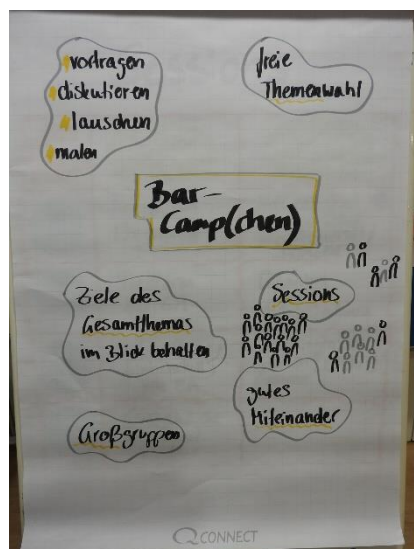 vortragen
diskutieren
lauschen
malen
freie
Themenwahl
Bar-
Camp(chen)
Ziele des
Gesamtthemas
im Blick behalten
Sessions
gutes
Miteinander
Großgruppen
CONNECT